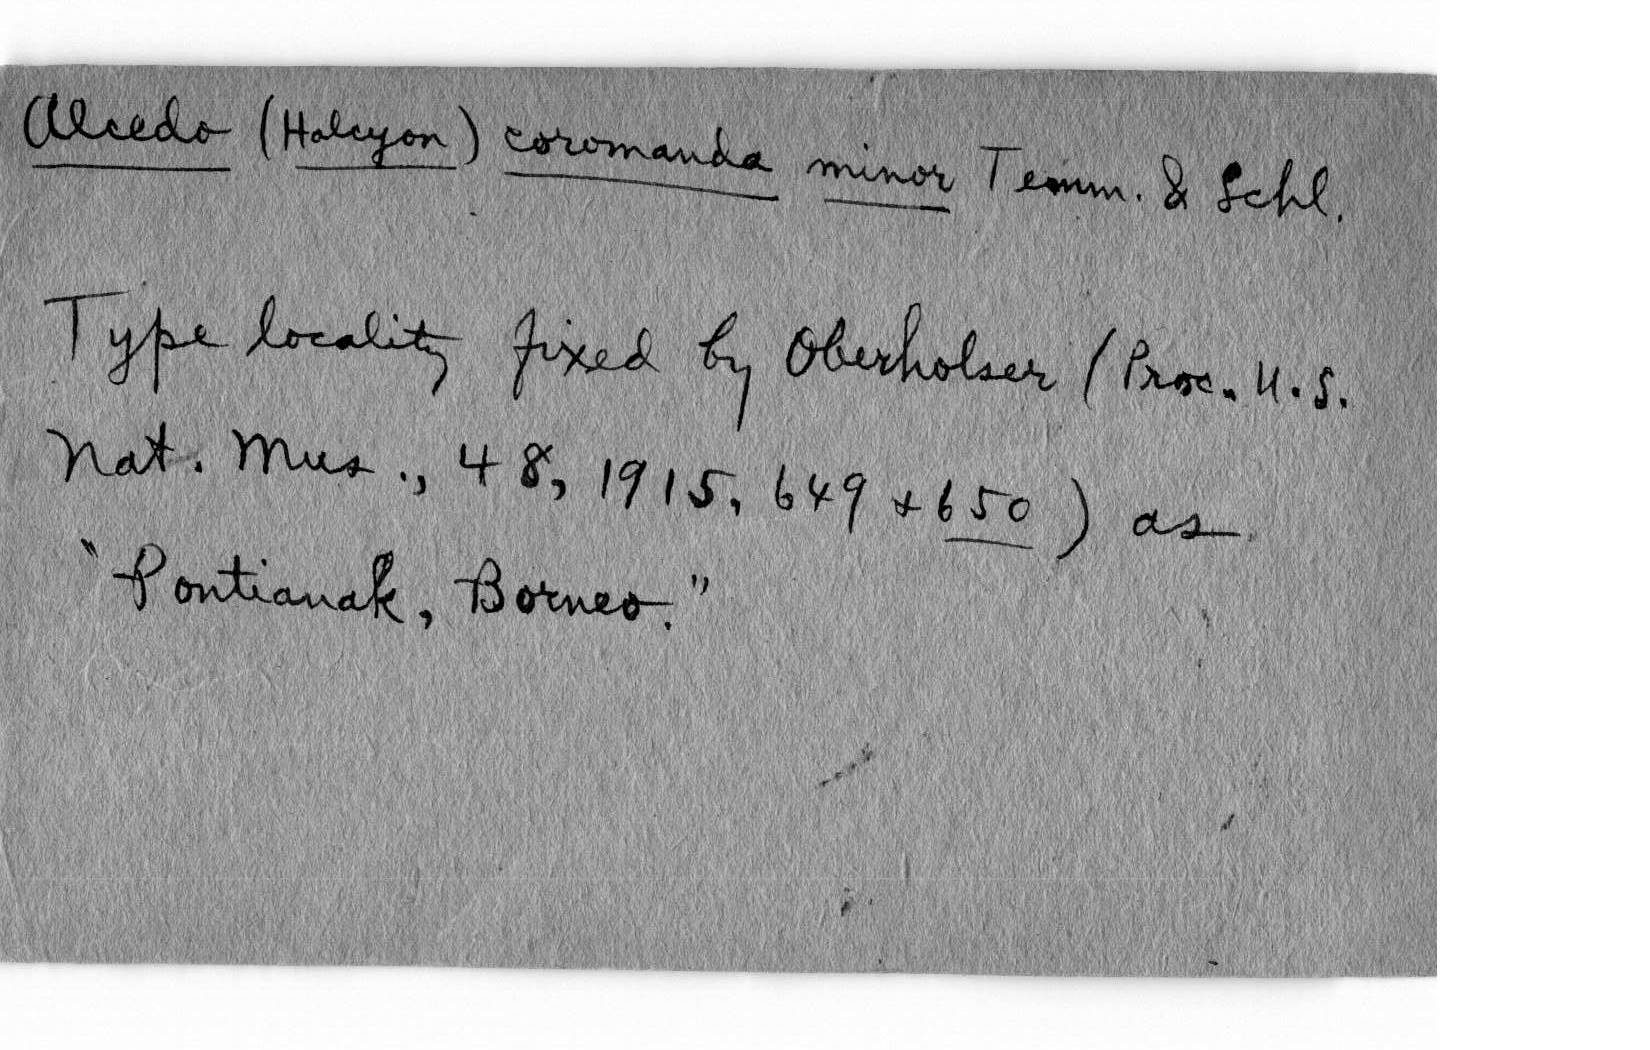 Alcedo (Halcyon) coromanda minor Temm. & Schl.
Type locality fixed by Oberholser (Proc. U.S.
Nat. Mus., 48, 1915, 649 + 650) as
"Pontianak, Borneo."